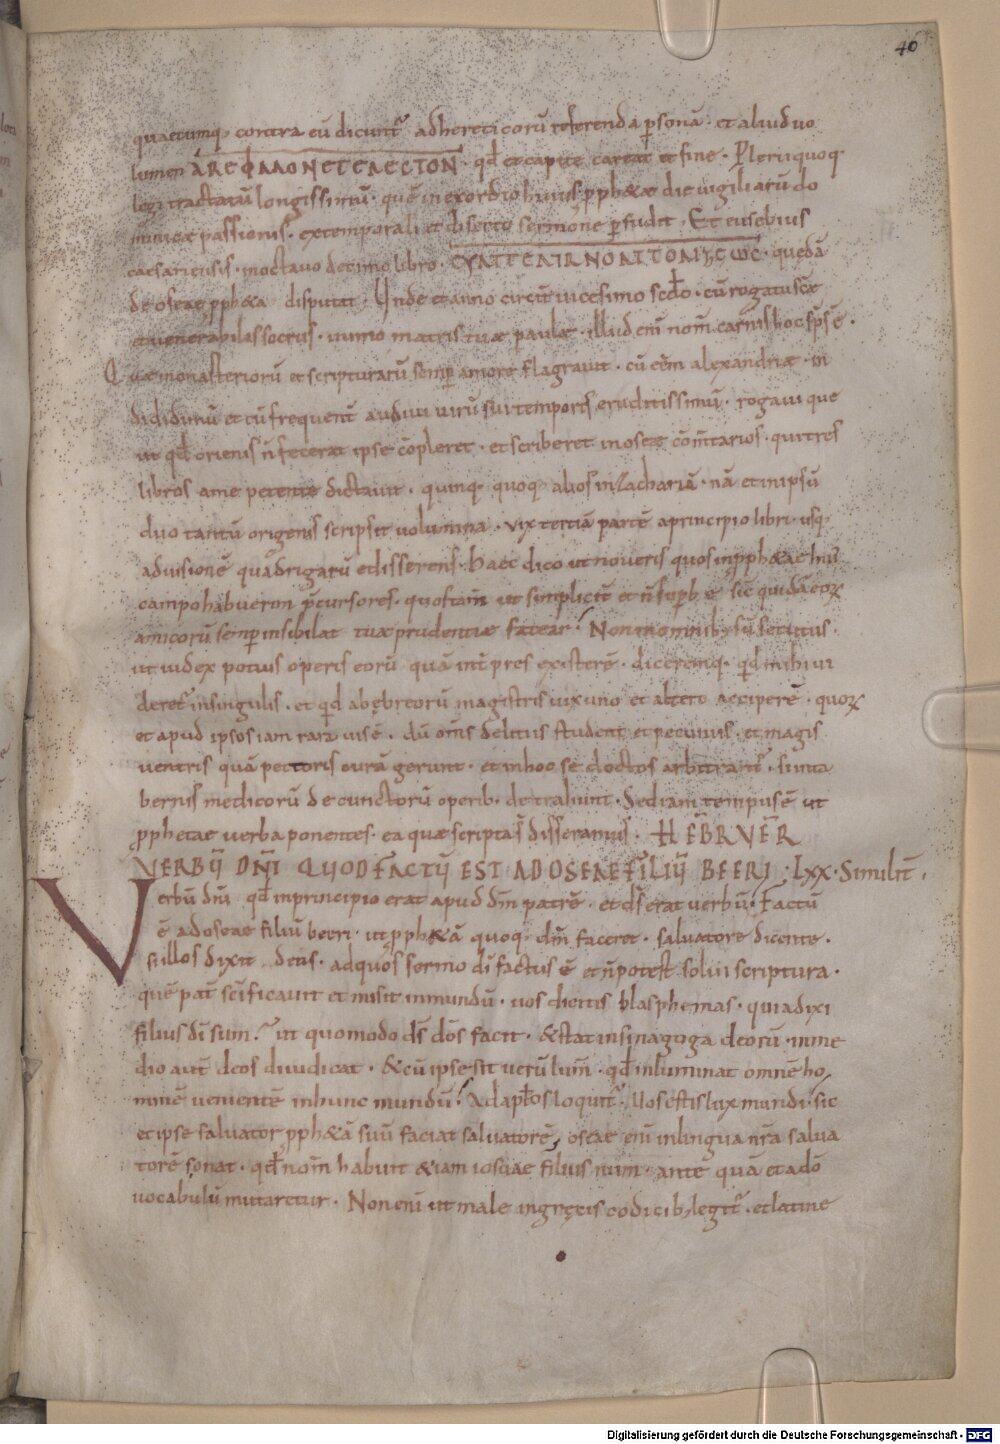 46
quaecumq; contra eū dicunt᷑ ad hereticorū referenda ꝑsonā · et aliud uo
lumen · qđ et capite careat et fine · Pierii quoq·
legi tractatū longissimū · quē in exordio huius ꝓph&ae die uigiliarū do
minicae passionis · extemporali et diserto sermone ꝑfudit · Et eusebius
caesariensis · in octauo decimo libro · quedā
de oseae ꝓph&a disputat · Unde et anno circit̄ uicesimo scđo · cū rogatu scæ
et uenerabilis socrus · immo matris tuæ paulæ · illud eni nom̄ carnis hoc sp̄s ē ·
Quæ monasteriorū et scripturarū semꝑ amore flagrauit · cū eēm alexandriæ · ui
di didimū et eū frequent̄ audiui uirū sui temporis eruditissimū · rogaui que
ut qđ orienis n̄ fecerat ipse cōpleret · et scriberet in oseæ com̄tarios · qui tres
libros a me petente dictauit · quinq· quoq· alios in Zachariā · nā et in ipsū
duo tantū origenis scripsit uolumina · vix tertiā partē a principio libri · usq·
ad uisionē quadrigarū edisserens · Haec dico ut noueris quos in ꝓph&ae hui
campo habuerim p̄cursores · quos tam̄ ut simplicit̄ et n̄ suꝑb ē sic quidā eoꝝ
amicorū semꝑ insibilat tuæ prudentiæ fatear · Non in omnib; sū secutus ·
ut iudex potius operis eorū quā int̄pres existerē · diceremq· qđ mihi ui
deret᷑ in singulis · et qđ ab ębreorū magistris uix uno et altero acciperē · quoꝝ
et apud ipsos iam rara uis ē · dū om̄s delitiis student et pecuniis · et magis
uentris quā pectoris curā gerunt · et in hoc se doctos arbitrant᷑ · si in ta
bernis medicorū de cunctorū operib· detrahunt · Sed iam tempus ē ut
ꝓphetae uerba ponentes · ea quæ scripta s̄ disseramus · HEBR VER
VERBŪ DN̄I QUOD FACTŪ EST AD OSEAE FILIŪ BEERI · LXX · Similit̄ ·
Verbū dn̄i qđ in principio erat apud dm̄ patrē · et ds̄ erat uerbū · Factū
ē ad oseae filiū beeri · ut ꝓph&ā quoq· dm̄ faceret · saluatore dicente ·
Si illos dixit deos · ad quos sermo di factus ē et n̄ potest solui scriptura ·
quē pat̄ scificauit et misit in mundū · uos dicitis blasphemas · quia dixi
filius di sum · ut quomodo ds̄ dōs facit · &stat in sinagoga deorū · in me
dio aut̄ deos diiudicat · &cū ipse sit uerū lum̄ · qđ inluminat omnē ho
minē uenientē in hunc mundū · Ad apl̄os loquit᷑ · Uos estis lux mundi · sic
et ipse saluator ꝓph&ā suū faciat saluatorē, oseae eni in lingua nr̄a salua
torē sonat · qđ nom̄ habuit &iam iosuae filius num · ante quā et a dō
uocabulū mutaretur · Non eni ut male in gręcis codicib; legit᷑ · et latine
Digitalisierung gefördert durch die Deutsche Forschungsgemeinschaft - DFG